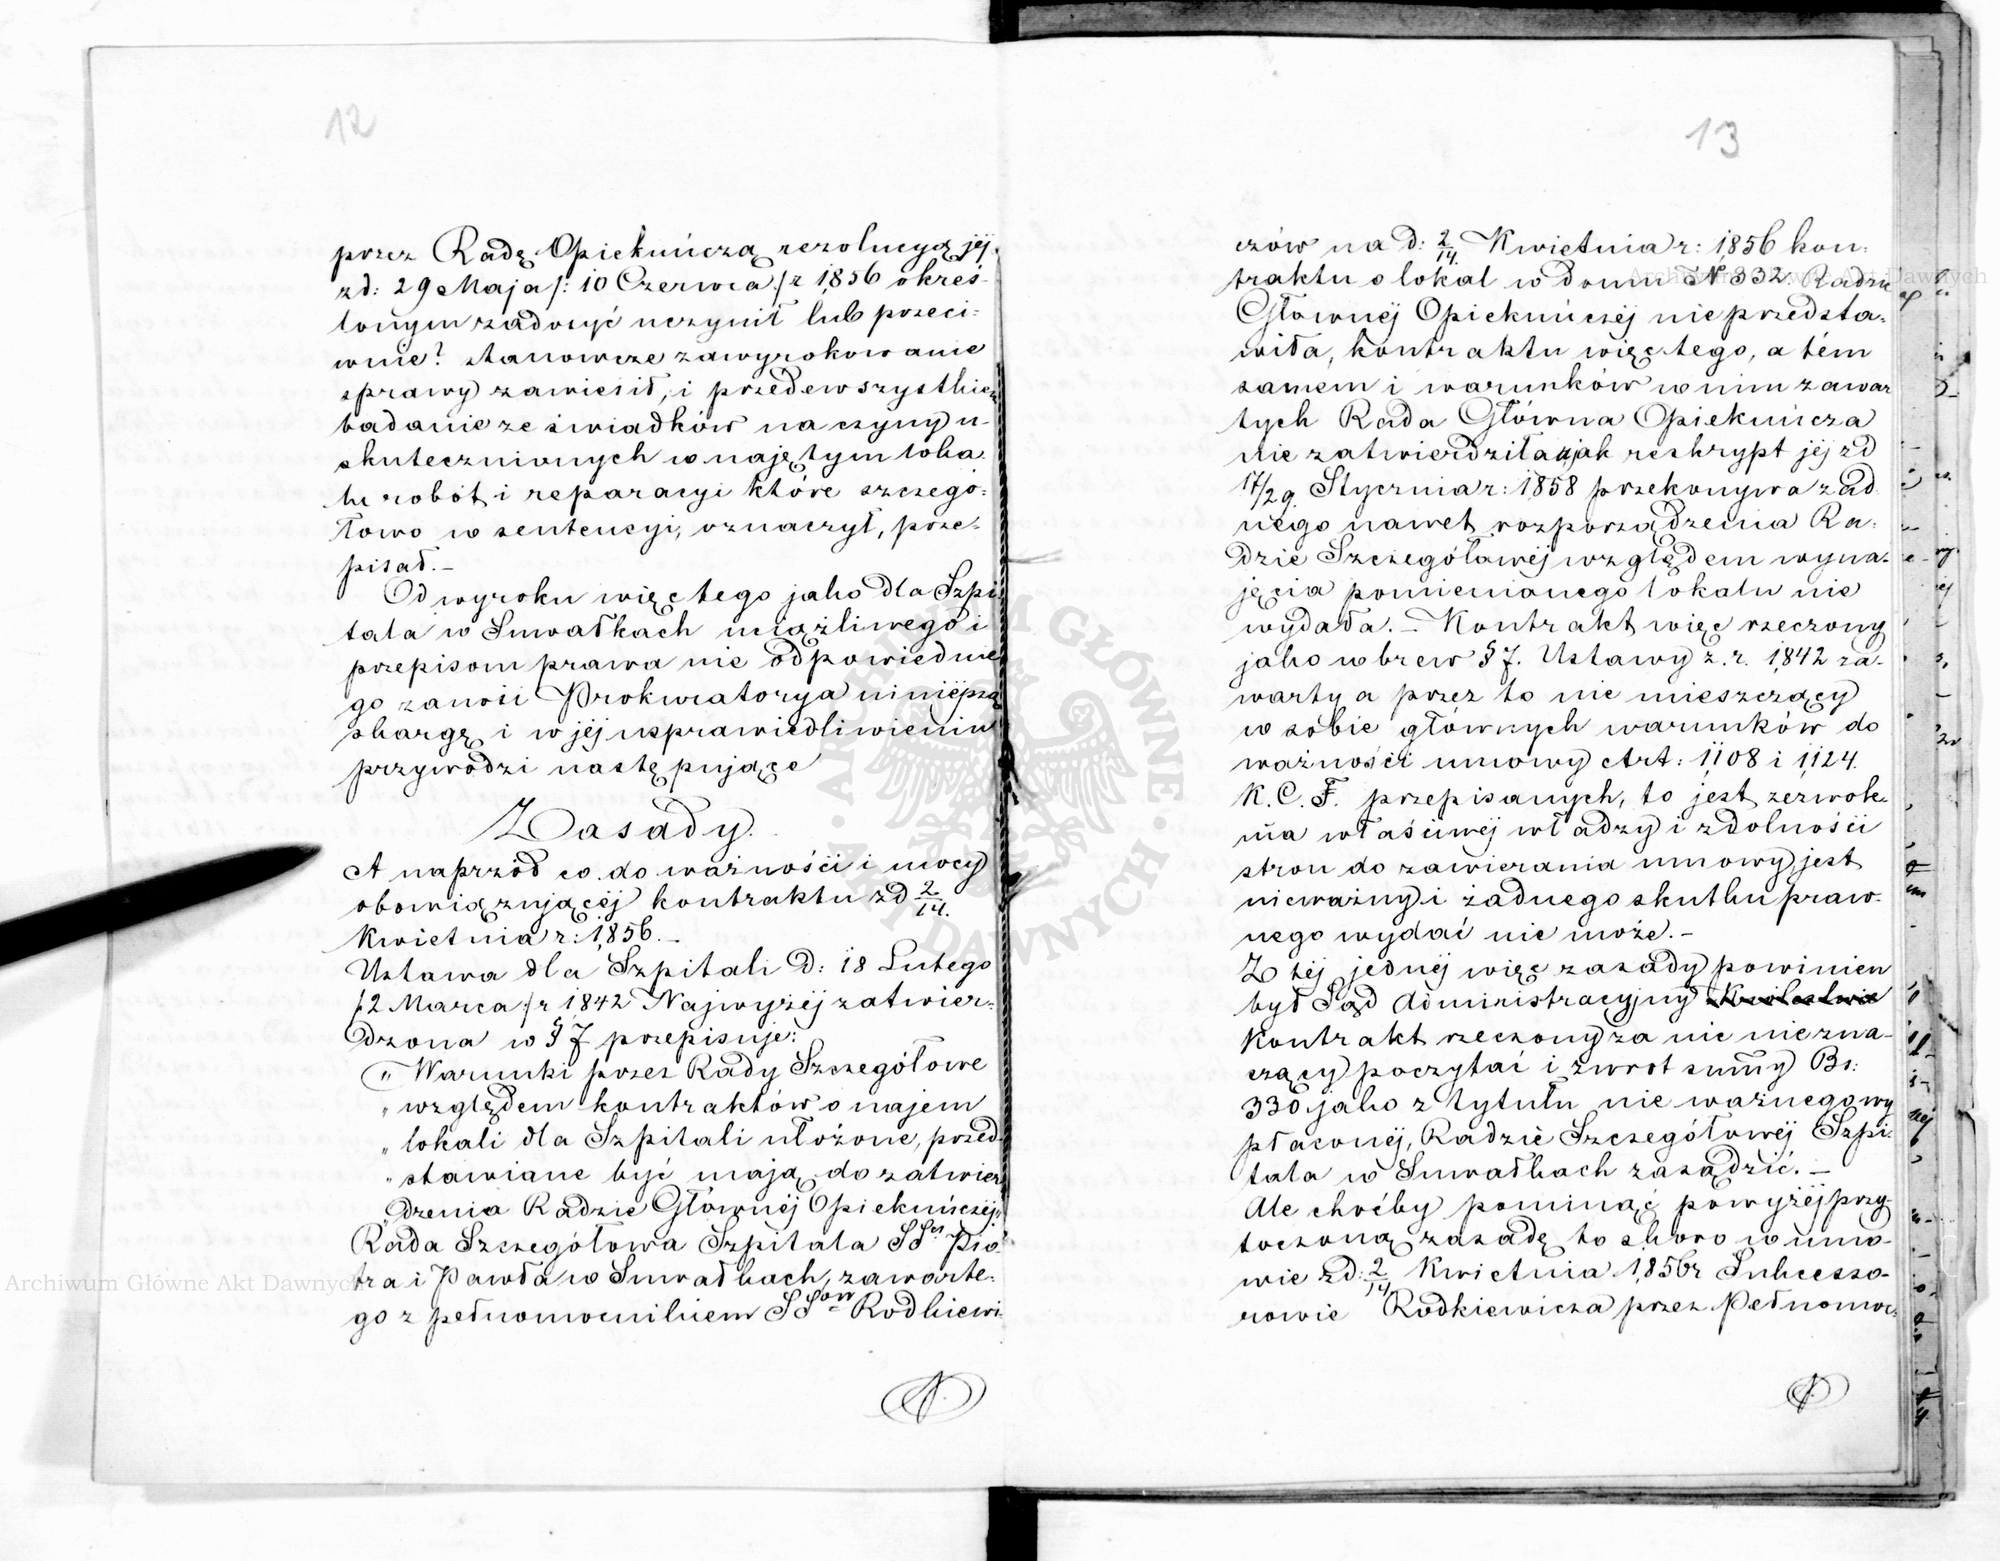 12
przez Radę Opiekuńczą rezolucyą jéj
zd: 29 Maja /: 10 Czerwca /r 1856 okreś-
lonym zadosyć uczynił lub przeci-
wnie? stanowcze zawyrokowanie
sprawy zawiesił, i przedewszystkiem
badanie ze świadków na czyny u-
skutecznionych w najętym loka-
lu robót i reparacyi które szczegó-
łowo w sentencyi, oznaczył, prze-
pisał. –
Od wyroku więc tego jako dla Szpi-
tala w Suwałkach uciążliwego i
przepisom prawa nie odpowiednie
go zanosi Prokuratorya niniéjszą
skargę i w jéj usprawiedliwieniu
przywodzi następujące
Zasady.
A naprzód co do ważności i mocy
obowiązującéj kontraktu zd 2/14.
Kwietnia r: 1856. –
Ustawa dla Szpitali d: 18 Lutego
/2 Marca/ r 1842 Najwyżéj zatwier-
dzona w § 7 przepisuje:
„Warunki przez Rady Szczegółowe
„względem kontraktów o najem
„lokali dla Szpitali ułożone, przed-
„stawiane być mają do zatwier
„dzenia Radzie Głównéj Opiekuńczéj"
Rada Szczegółowa Szpitala SSgo Pio-
tra i Pawła w Suwałkach, zawarte-
go z pełnomocnikiem SSów Rodkiewi-
13
czów na d: 2/14. Kwietnia r: 1856 kon-
traktu o lokal w domu N 332. Radzie
Głównéj Opiekuńczéj nie przedsta-
wiła, kontraktu więc tego, a tém
samem i warunków w nim zawar
tych Rada Główna Opiekuńcza
nie zatwierdziła a jak reskrypt jéj zd
17/29. Stycznia r: 1858 przekonywa żad
nego nawet rozporządzenia Ra-
dzie Szczegółowéj względem wyna-
jęcia pomienionego lokalu nie
wydała. – Kontrakt więc rzeczony
jako wbrew § 7. Ustawy z. r. 1842 za-
warty a przez to nie mieszczący
w sobie głównych warunków do
ważności umowy Art: 1108 i 1124.
K. C. F. przepisanych, to jest zezwole-
nia właściwéj władzy i zdolności
stron do zawierania umowy jest
nieważny i żadnego skutku praw-
nego wydać nie może. –
Z téj jednéj więc zasady powinien
był Sąd Administracyjny Królestwa
Kontrakt rzeczony za nic nie zna-
czący poczytać i zwrot summy Rs:
330 jako z tytułu nie ważnego wy
płaconéj, Radzie Szczegółowéj Szpi-
tala w Suwałkach zasądzić. –
Ale choćby pominąć powyżéj przy-
toczoną zasadę to skoro w umo-
wie zd: 2/14 Kwietnia 1856r Sukcesso-
rowie Rodkiewicza przez Pełnomoc-
Archiwum Główne Akt Dawnych
Archiwum Główne Akt Dawnych
ARCHIWUM GŁÓWNE · AKT DAWNYCH ·